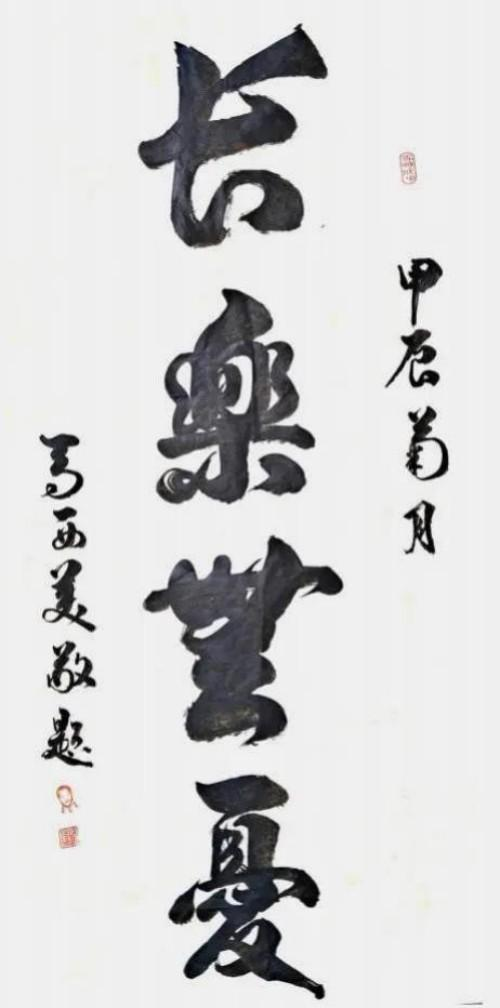 甲辰菊月
长樂無憂
馬西美敬題